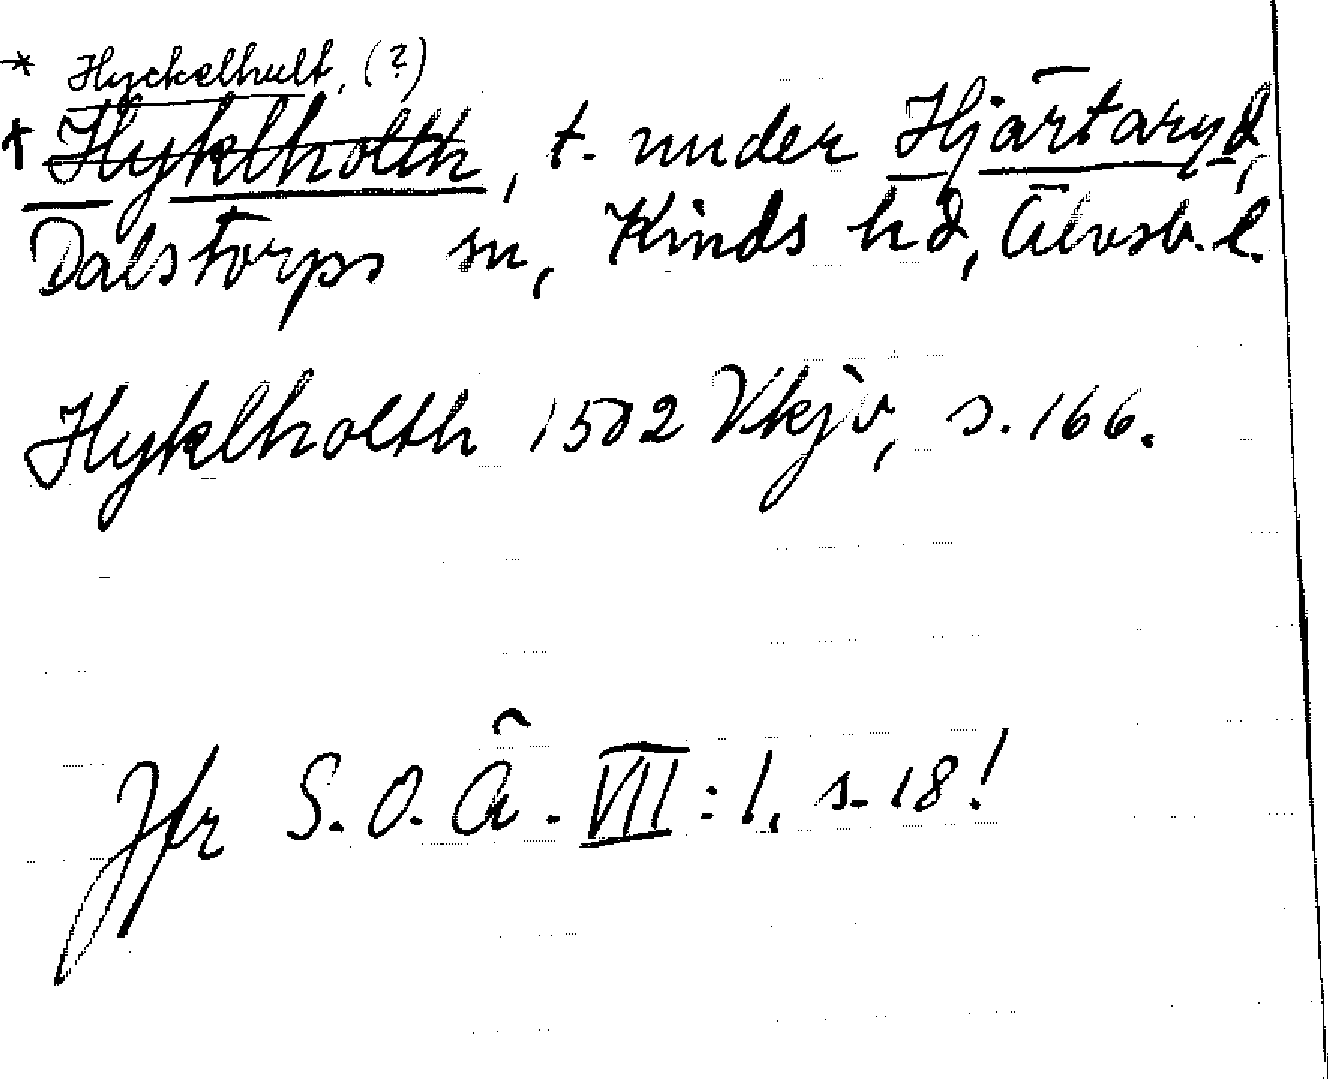 * Hyckelhult, (?)
† Hyklholth, t. under Hjärtaryd,
Dalstorps sn, Kinds hd, Älvsb. l.
Hyklholth 1502 Vkjb, s. 166.
Jfr S. O. Ä. VII : 1, s. 18!